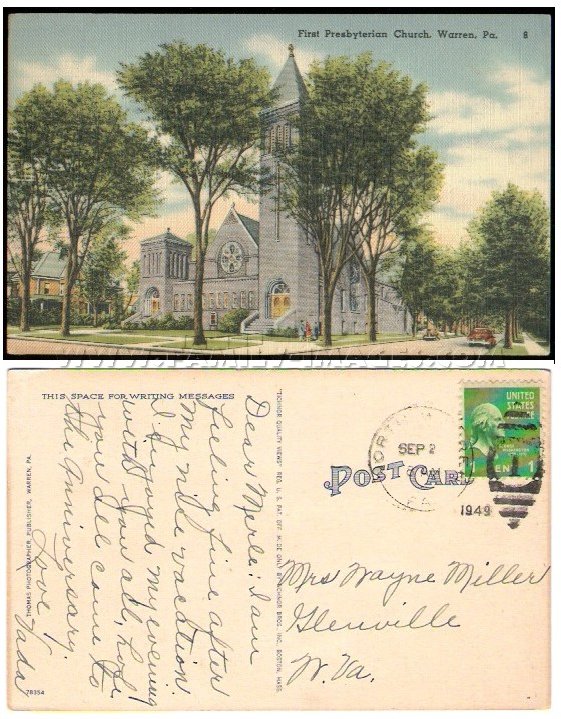 First Presbyterian Church, Warren, Pa. 8
WWW.FAMILY-IMAGES.COM
THIS SPACE FOR WRITING MESSAGES
Dear Merle: I am
feeling fine after
my nice vacation.
I enjoyed my evening
with you all, hope
you all come to
the anniversary.
Love,
Vada
THOMAS PHOTOGRAPHER, PUBLISHER, WARREN, PA.
78354
"TICHNOR QUALITY VIEWS" REG. U. S. PAT. OFF. MADE ONLY BY TICHNOR BROS., INC., BOSTON, MASS.
POST CARD
SEP 2
PA.
1949
UNITED
STATES
CENT 1
Mrs Wayne Miller
Glenville
W. Va.